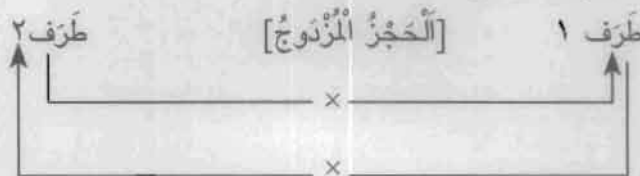 طَرَف ١ [اَلْحَجْزُ الْمُزْدَوجُ] طَرَف٢
×
×